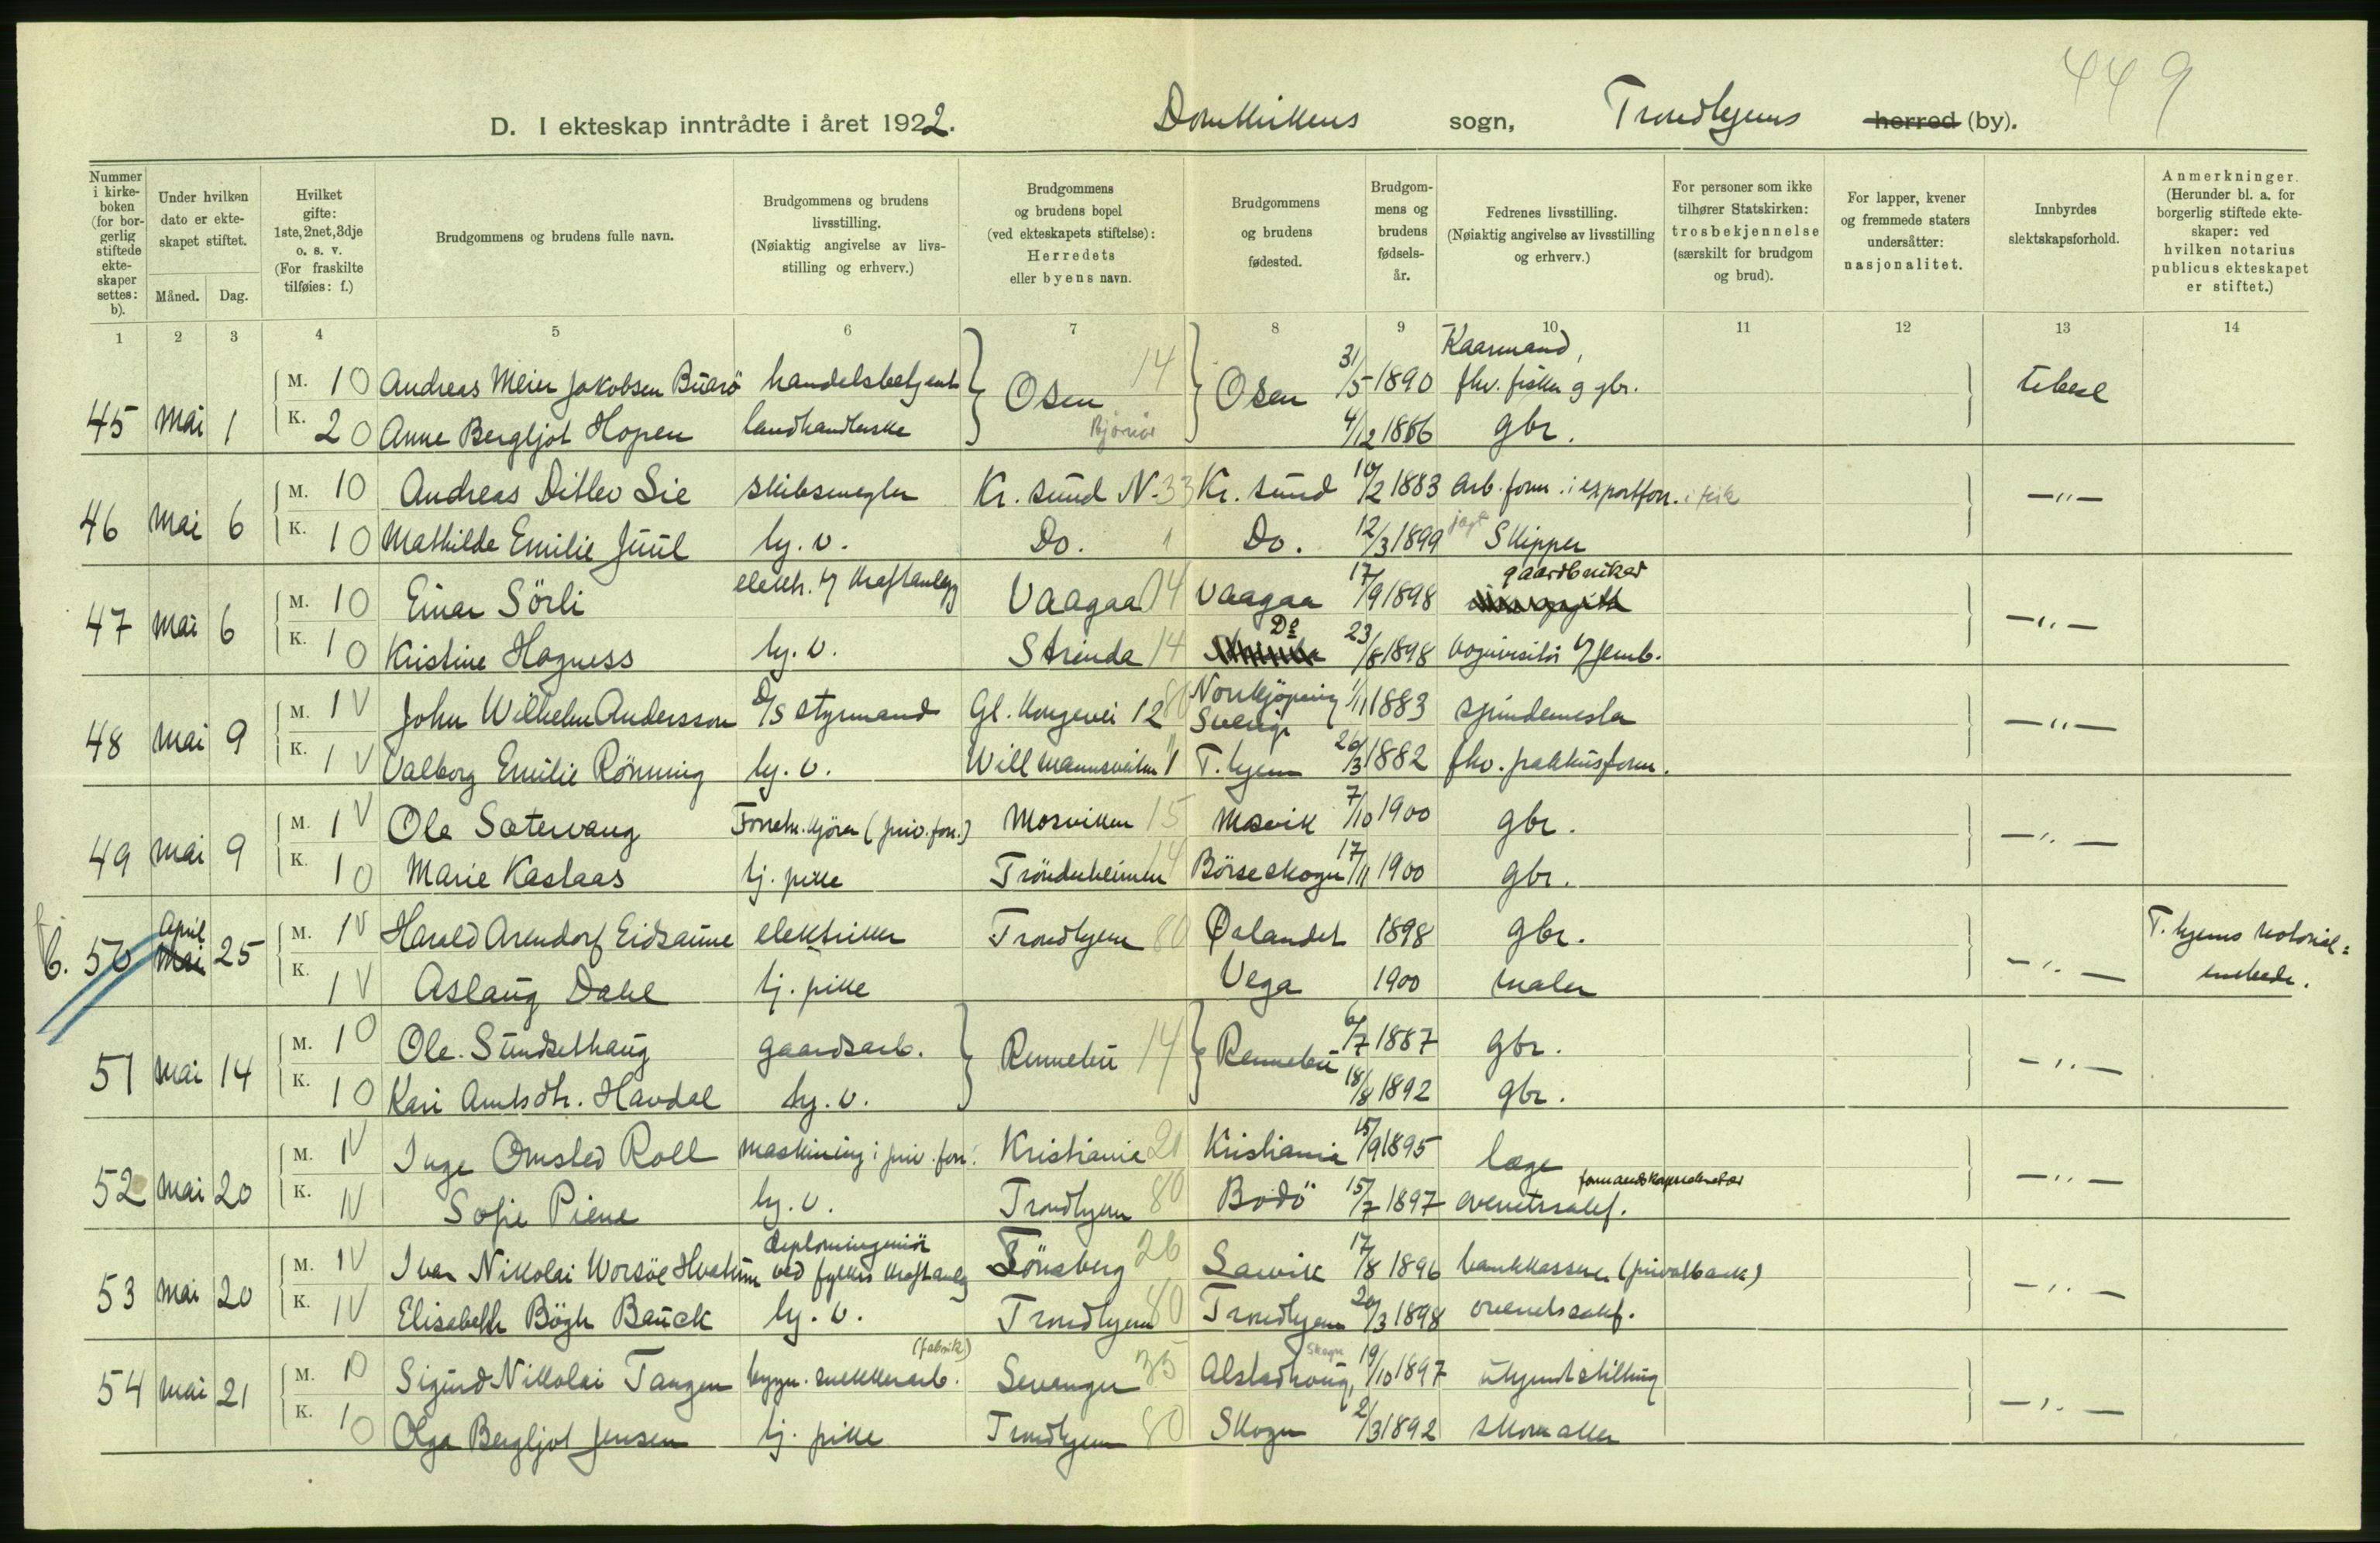 449
D. I ekteskap inntrådte i året 1922. Domkirkens sogn, Trondhjems herred (by).
Nummer i kirkeboken (for borgerlig stiftede ekteskaper settes: b).
Under hvilken dato er ekteskapet stiftet.
Måned. Dag.
Hvilket gifte: 1ste, 2net, 3dje o. s. v. (For fraskilte tilføies: f.)
Brudgommens og brudens fulle navn.
Brudgommens og brudens livsstilling. (Nøiaktig angivelse av livsstilling og erhverv.)
Brudgommens og brudens bopel (ved ekteskapets stiftelse): Herredets eller byens navn.
Brudgommens og brudens fødested.
Brudgommens og brudens fødselsår.
Fedrenes livsstilling. (Nøiaktig angivelse av livsstilling og erhverv.)
For personer som ikke tilhører Statskirken: trosbekjennelse (særskilt for brudgom og brud).
For lapper, kvener og fremmede staters undersåtter: nasjonalitet.
Innbyrdes slektskapsforhold.
Anmerkninger. (Herunder bl. a. for borgerlig stiftede ekteskaper: ved hvilken notarius publicus ekteskapet er stiftet.)
1 2 3 4 5 6 7 8 9 10 11 12 13 14
45 Mai 1 M. 1 0 Andreas Meier Jakobsen Buarö handelsbetjent Osen 14 Osen 31/5 1890 Kaarmand, fhv. fisker og gbr.
K. 2 0 Anne Bergljot Hopen landhandlerske Bjørnør 4/12 1886 gbr.
46 Mai 6 M. 1 0 Andreas Ditlev Lie skibsmegler Kr. sund N. 33 Kr. sund 10/2 1883 Arb. form. i exportforr. i fisk —"—
K. 1 0 Mathilde Emilie Juul hj. v. Do. 1 Do. 12/3 1899 jagt Skipper
47 Mai 6 M. 1 0 Einar Sörli elektr. v/ Kraftanlegg Vaagaa 14 Vaagaa 17/9 1898 gaardbruker —"—
K. 1 0 Kristine Hagness hj. v. Strinda 14 Do 23/8 1898 vognvisitör v/ Jernb.
48 Mai 9 M. 1 V John Wilhelm Andersson D/S styrmand Gl. Kongevei 12 80 Norrkjöping Sverige 1/11 1883 spindemester —"—
K. 1 V Valborg Emilie Rönning hj. v. Willmannsveiten 1 T. hjem 26/3 1882 fhv. pakhusform.
49 Mai 9 M. 1 V Ole Sætervang Forretn. kjörer (priv. forr.) Mosviken 15 Mosvik 7/10 1900 gbr. —"—
K. 1 0 Marie Kaslaas tj. pike Trönderheimen 14 Börseskogn 17/11 1900 gbr.
b. 50 April Mai 25 M. 1 V Harald Arendorf Eidsaune elektriker Trondhjem 80 Ørlandet 1898 gbr. —"— T. hjems notorial=
K. 1 V Aslaug Dahl tj. pike Vega 1900 maler embede.
51 Mai 14 M. 1 0 Ole Sundsethaug gaardsarb. Rennebu 14 Rennebu 6/7 1887 gbr. —"—
K. 1 0 Kari Arntsdtr. Havdal hj. v. 18/8 1892 gbr.
52 Mai 20 M. 1 V Inge Omsted Roll maskining i priv. forr. Kristiania 21 Kristiania 15/9 1895 læge —"—
K. 1 V Sofie Piene hj. v. Trondhjem 80 Bodö 15/7 1897 overretssakf.
53 Mai 20 M. 1 V Ivar Nikolai Worsöe Hvatum diplomingeniör ved fylkets kraftanlg Tönsberg 26 Larvik 17/8 1896 bankkasserer (privatbank) —"—
K. 1 V Elisabeth Bögh Bauck hj. v. Trondhjem 80 Trondhjem 20/3 1898 overretssakf.
54 Mai 21 M. 1 0 Sigurd Nikolai Tangen bygn. snekkerarb. (fabrik) Levanger 35 Alstadhoug, Skogn 19/10 1897 ukjendt stilling —"—
K. 1 0 Olga Bergljot Jensen tj. pike Trondhjem 80 Skogn 2/3 1892 skomaker